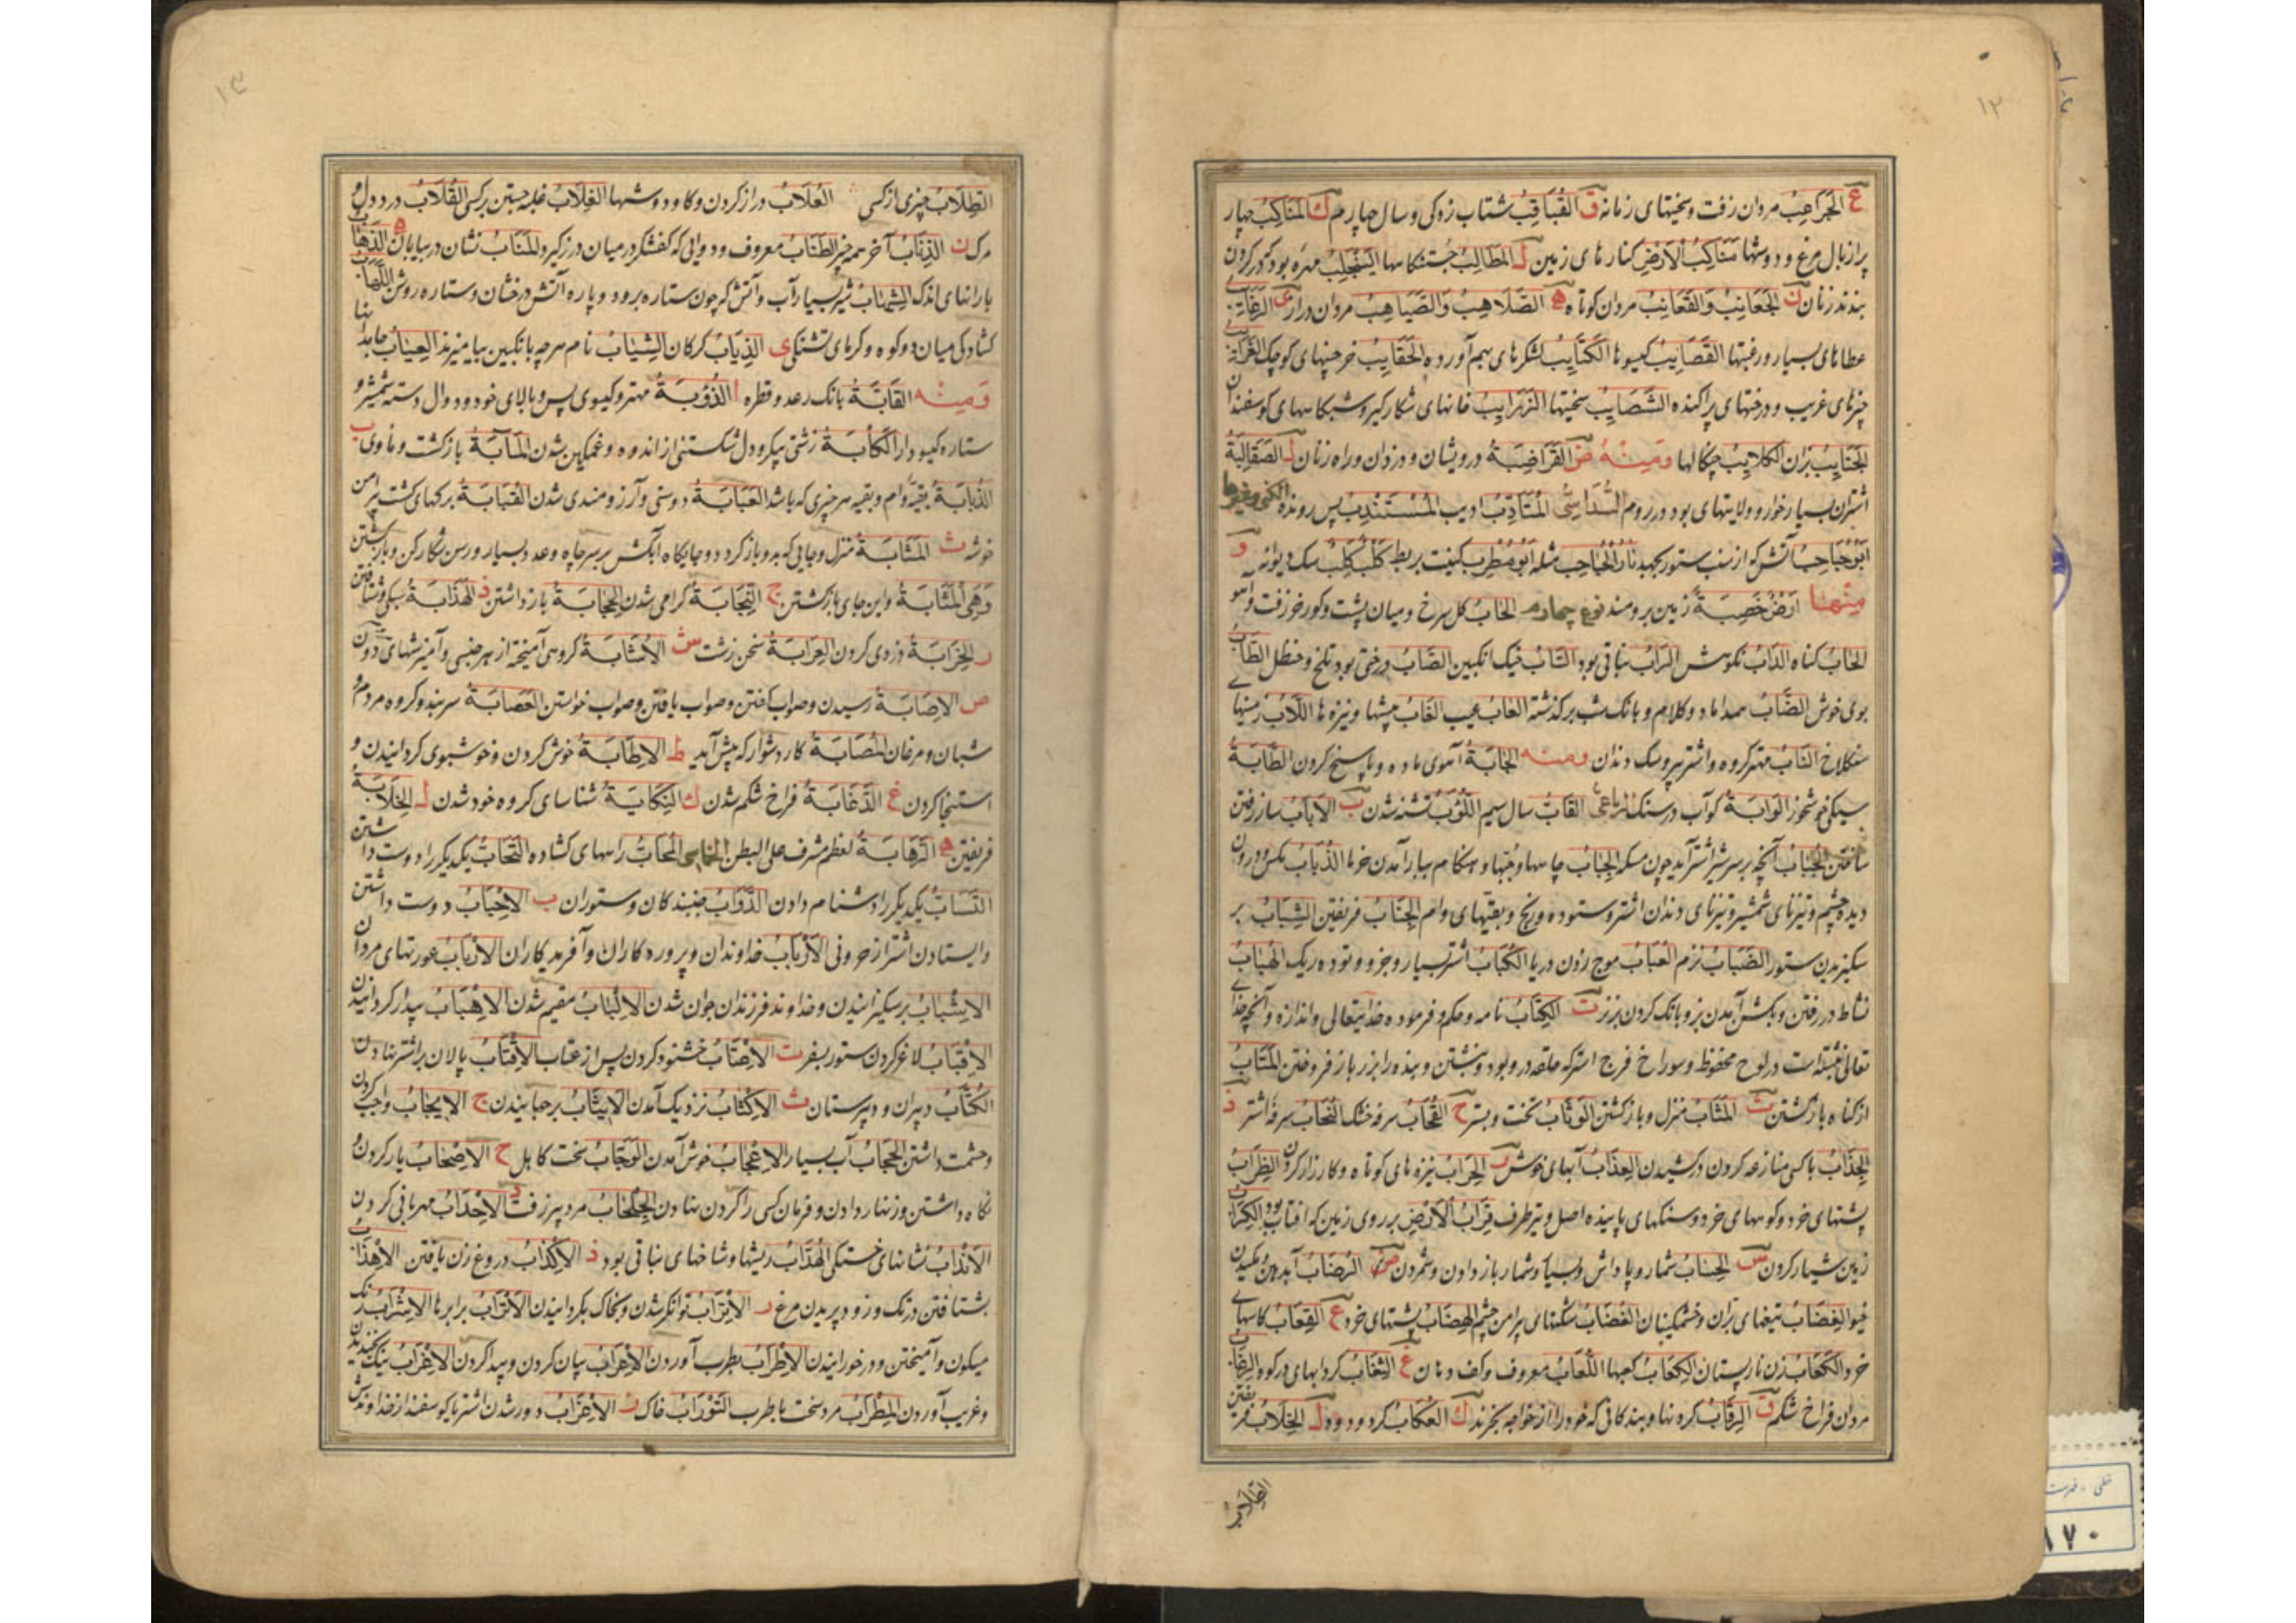 ۱۲
ع الجراعیب مردان زفت وسختیهای زمانه ق القباقب شتاب زدگی و سال چهارم ك المناکب چهار
پر از بال مرغ و دوشها مناکب الارض کنارهای زمین ل المطالب جستنکاهها الینجلب مهره بود که در گردن
بندند زنان ن الجعانب والقعانب مردان کوتاه ه الصلاهب والصیاهب مردان دراز ی الرغائب
عطاهای بسیار ورغبتها القصایب کیسوها الکتایب لشکرهای بهم آورده الحقایب خرجینهای کوچک الغرائب
چیزهای غریب ودرختهای پراکنده الشصایب سختیها الزرایب خانهای شکارگیر وشبکاههای کوسفندان
الجنایب بران الکلایب چنکالها ومنه ض القراضبة درویشان ودزدان وراه زنان ل الصقالبة
اشتران بسیار خوار و ولایتهای بود در روم السداسی المتادب ادیب المستندب پس رونده الکنی وغیرها
ابوحباحب آتش که از سنب ستور بجهد نار الحباحب مثله ابومطرب کنیت بربط کلب کلب سک دیوانه و
منها ارض خصبة زمین برومند نوع چهارم الجاب کل سرخ ومیان پشت وکورخر زفت وآهو
الحاب کناه الذاب نکوهش الراب نباقی بود الشاب خیک انکبین الصاب درختی بود تلخ وحنظل الطاب
بوی خوش الضاب همداماد وکلام وبانک شب برکذشته العاب عیب الغاب بیشها ونیزه ها اللاب زمینهای
سنکلاخ الناب مهتر کروه واشتر پیر وسک دندان ومنه الجابة آهوی ماده وپاسخ کردن الطابة
سیکی خوشخوز الوابة کوآب در سنک الرباعی القاب سال سیم اللوب تشنه شدن ب الاباب ساز رفتن
ساختن الجباب آنچه بر سر شیر اشتر آید چون مسکه الجباب چاهها وجبها وهنکام ببار آمدن خرما الذباب مکس ودرون
دیده چشم وتیزنای شمشیر وتیزنای دندان اشتر وستوده ورنج وبقیتهای وام الجناب فریفتن الشباب بر
سکیزیدن ستور الضباب نزم العباب موج زدن دریا الکباب اشتر بسیار وجزو وتوده ریک الهباب
نشاط در رفتن وبکشن آمدن بز وبانک کردن بز نر ت الکتاب نامه وحکم وفرموده خدایتعالی واندازه وآنچه خدای
تعالی نبشته است در لوح محفوظ وسوراخ فرج استر که حلقه در وبود ونبشتن وبنده را بزر باز فروختن المتاب
از کناه بازکشتن ث المثاب منزل وبازکشتن الوثاب تخت وبستر ح القحاب سرفه خشک النحاب سرفه اشتر ذ
الجذاب باکسی منازعه کردن در کشیدن العذاب آبهای خوش ر الحراب نیزه های کوتاه وکارزار کردن الظراب
پشتهای خرد وکوههای خرد وسنکهای پاینده اصل وتیز طرف قراب الارض بر روی زمین که آفتاب بود الکراب
زمین شیار کردن س الحساب شمار وپاداش وبسیار وشمار باز دادن وشمردن ض الرضاب آب دهن مکیدن
خیو الغضاب تیغهای بران وخشمکینان الغضاب شکنهای پیرامن چشم الهضاب پشتهای خرد ع القعاب کاسهای
خرد الکعاب زن نارپستان الکعاب کعبها اللعاب معروف وکف دهان غ الثغاب کردابهای در کوه الرغاب
مردان فراخ شکم ق الرقاب کردنها وبندکانی که خود را از خواجه بخرند ك العکاب کرد ودود ل الخلاب فریفتن
الطلاب
۱۳
الطلاب چیزی از کسی العلاب دراز کردن وکاو ودوشها الغلاب غلبه جستن بر کسی القلاب درد دل
مرک ن الذناب آخر همه چیز الطناب معروف ودوالی که کفشکر در میان درز کیرد المناب نشان در بیابان ه الذهاب
بارانهای اندک الشهاب شیر بسیار آب وآتش که چون ستاره برود وپاره آتش درخشان وستاره روشن اللهاب
کشادکی میان دو کوه وکرمای تشنکی ی الذیاب کرکان الشیاب نام هر چه با نکبین بیامیزند العیاب جامه دانها
ومنه القابة بانک رعد وقطره ا الذؤبة مهتر وکیسوی پس وبالای خود ودوال دسته شمشیر و
ستاره کیسودار الکابة زشتی پیکر ودل شکستنی از اندوه وغمکین شدن المآبة بازکشت وماوی ب
الذبابة بقیة وام وبقیه هر چیزی که باشد العبابة دوستی وآرزومندی شدن القبابة برکهای کشت پیرامن
خوشه ث المثابة منزل وجایی که بدو باز کردد وجایکاه آبکش بر سر چاه وعدد بسیار ورسن شکار کن وبازکشتن
وهی المثابة واین جای بازکشتن ج النجابة کرامی شدن الحجابة بازداشتن ذ الهذابة سبکی وشتافتن
ر الخرابة دزدی کردن العرابة سخن زشت ش الاشابة کروهی آمیخته از هر جنسی وآمیزشهای دون
ص الاصابة رسیدن وصواب کفتن وصواب یافتن وصواب خواستن العصابة سربند وکروه مردم و
شبان ومرغان المصابة کار دشوار که پیش آید ط الاطابة خوش کردن وخوشبوی کردانیدن و
استنجا کردن غ الدغابة فراخ شکم شدن ك النکابة شناسای کروه خود شدن ل الخلابة
فریفتن ه الرهابة لعظم مشرف علی البطن الخماسی المحاب راههای کشاده التحاب یکدیکر را دوست داشتن
التساب یکدیکر را دشنام دادن الدواب جنبندکان وستوران ب الاحباب دوست داشتن
وایستادن اشتر از حرونی الارباب خداوندان وپرورده کاران وآفریدکاران الازباب عورتهای مردان
الاشباب برسکیزانیدن وخداوند فرزندان جوان شدن الالباب مقیم شدن الاهباب بیدار کردانیدن
الاقباب لاغر کردن ستور بسفر ت الاعتاب خشنود کردن پس از عتاب الاقتاب پالان بر اشتر نهادن
الکتاب دبیران ودبیرستان ث الاکثاب نزدیک آمدن الایثاب برجهانیدن ج الایجاب واجب کردن
وحشمت داشتن الحجاب آب بسیار الاعجاب خوش آمدن الوجاب سخت کاهل ح الاصحاب یار کردن و
نکاه داشتن وزنهار دادن وفرمان کسی را کردن نهادن الجلحاب مرد پیر زفت د الاحداب مهربانی کردن
الانداب نشانهای خستکی الهداب ریشها وشاخهای نباقی بود ذ الاکذاب دروغ زن یافتن الاهذاب
بشتافتن در تک وزود پریدن مرغ ر الاتراب توانکر شدن وبخاک بکردانیدن الاتراب برابرها الاشراب رنک
میکون وآمیختن ودر خورانیدن الاطراب بطرب آوردن الاعراب بیان کردن وپیدا کردن الاغراب نیک بخندیدن
وغریب آوردن المطراب مرد سخت باطرب التوراب خاک ز الاعزاب دور شدن اشتر یا کوسفند از خداوندش